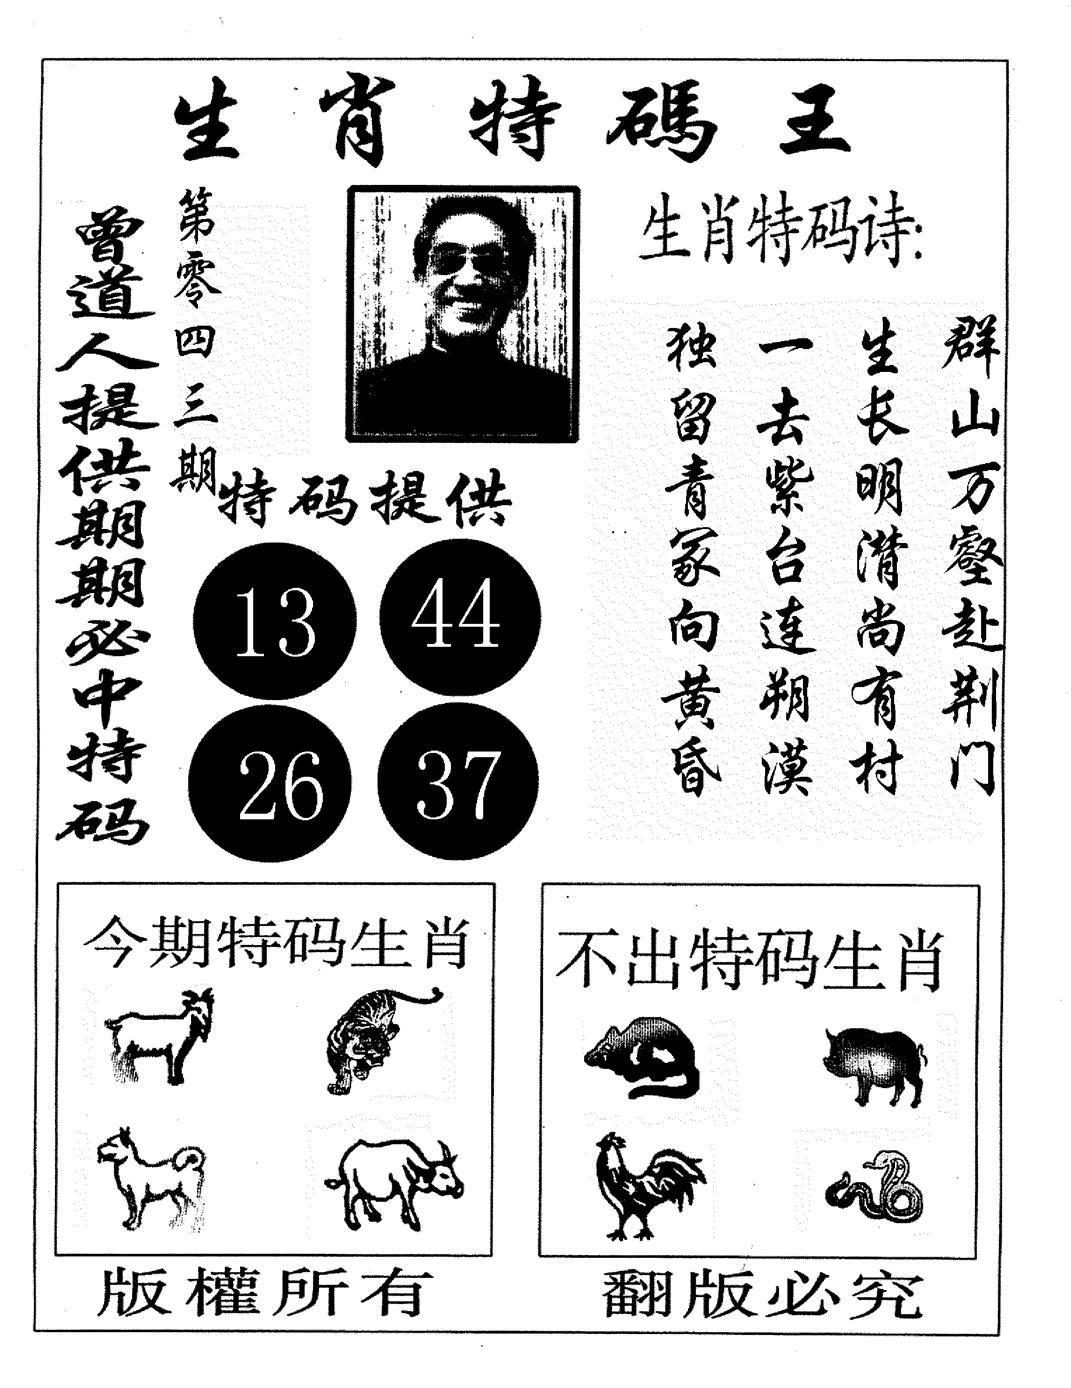 生肖特碼王
曾道人提供期期必中特码
第零四三期
特码提供
13 44
26 37
生肖特码诗:
群山万壑赴荆门
生长明潜尚有村
一去紫台连朔漠
独留青冢向黄昏
今期特码生肖
不出特码生肖
版權所有
翻版必究